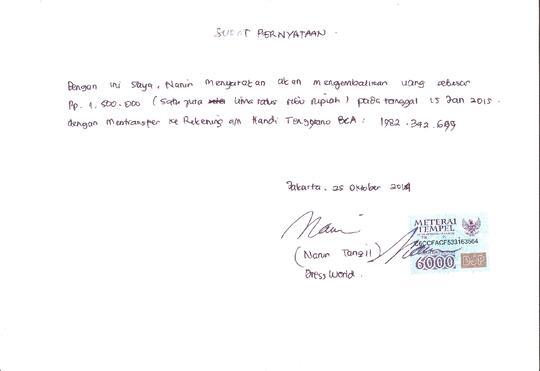 SURAT PERNYATAAN.
Dengan ini saya, Nanin menyatakan akan mengembalikan uang sebesar
Rp. 1.500.000 (satu juta lima ratus ribu rupiah) pada tanggal 15 Jan 2015.
dengan mentransfer ke Rekening a/n Handi BCA: 1982.342.699
Jakarta, 25 Oktober 2014
(Nanin Tangil)
Dress World.
METERAI
TEMPEL
6000